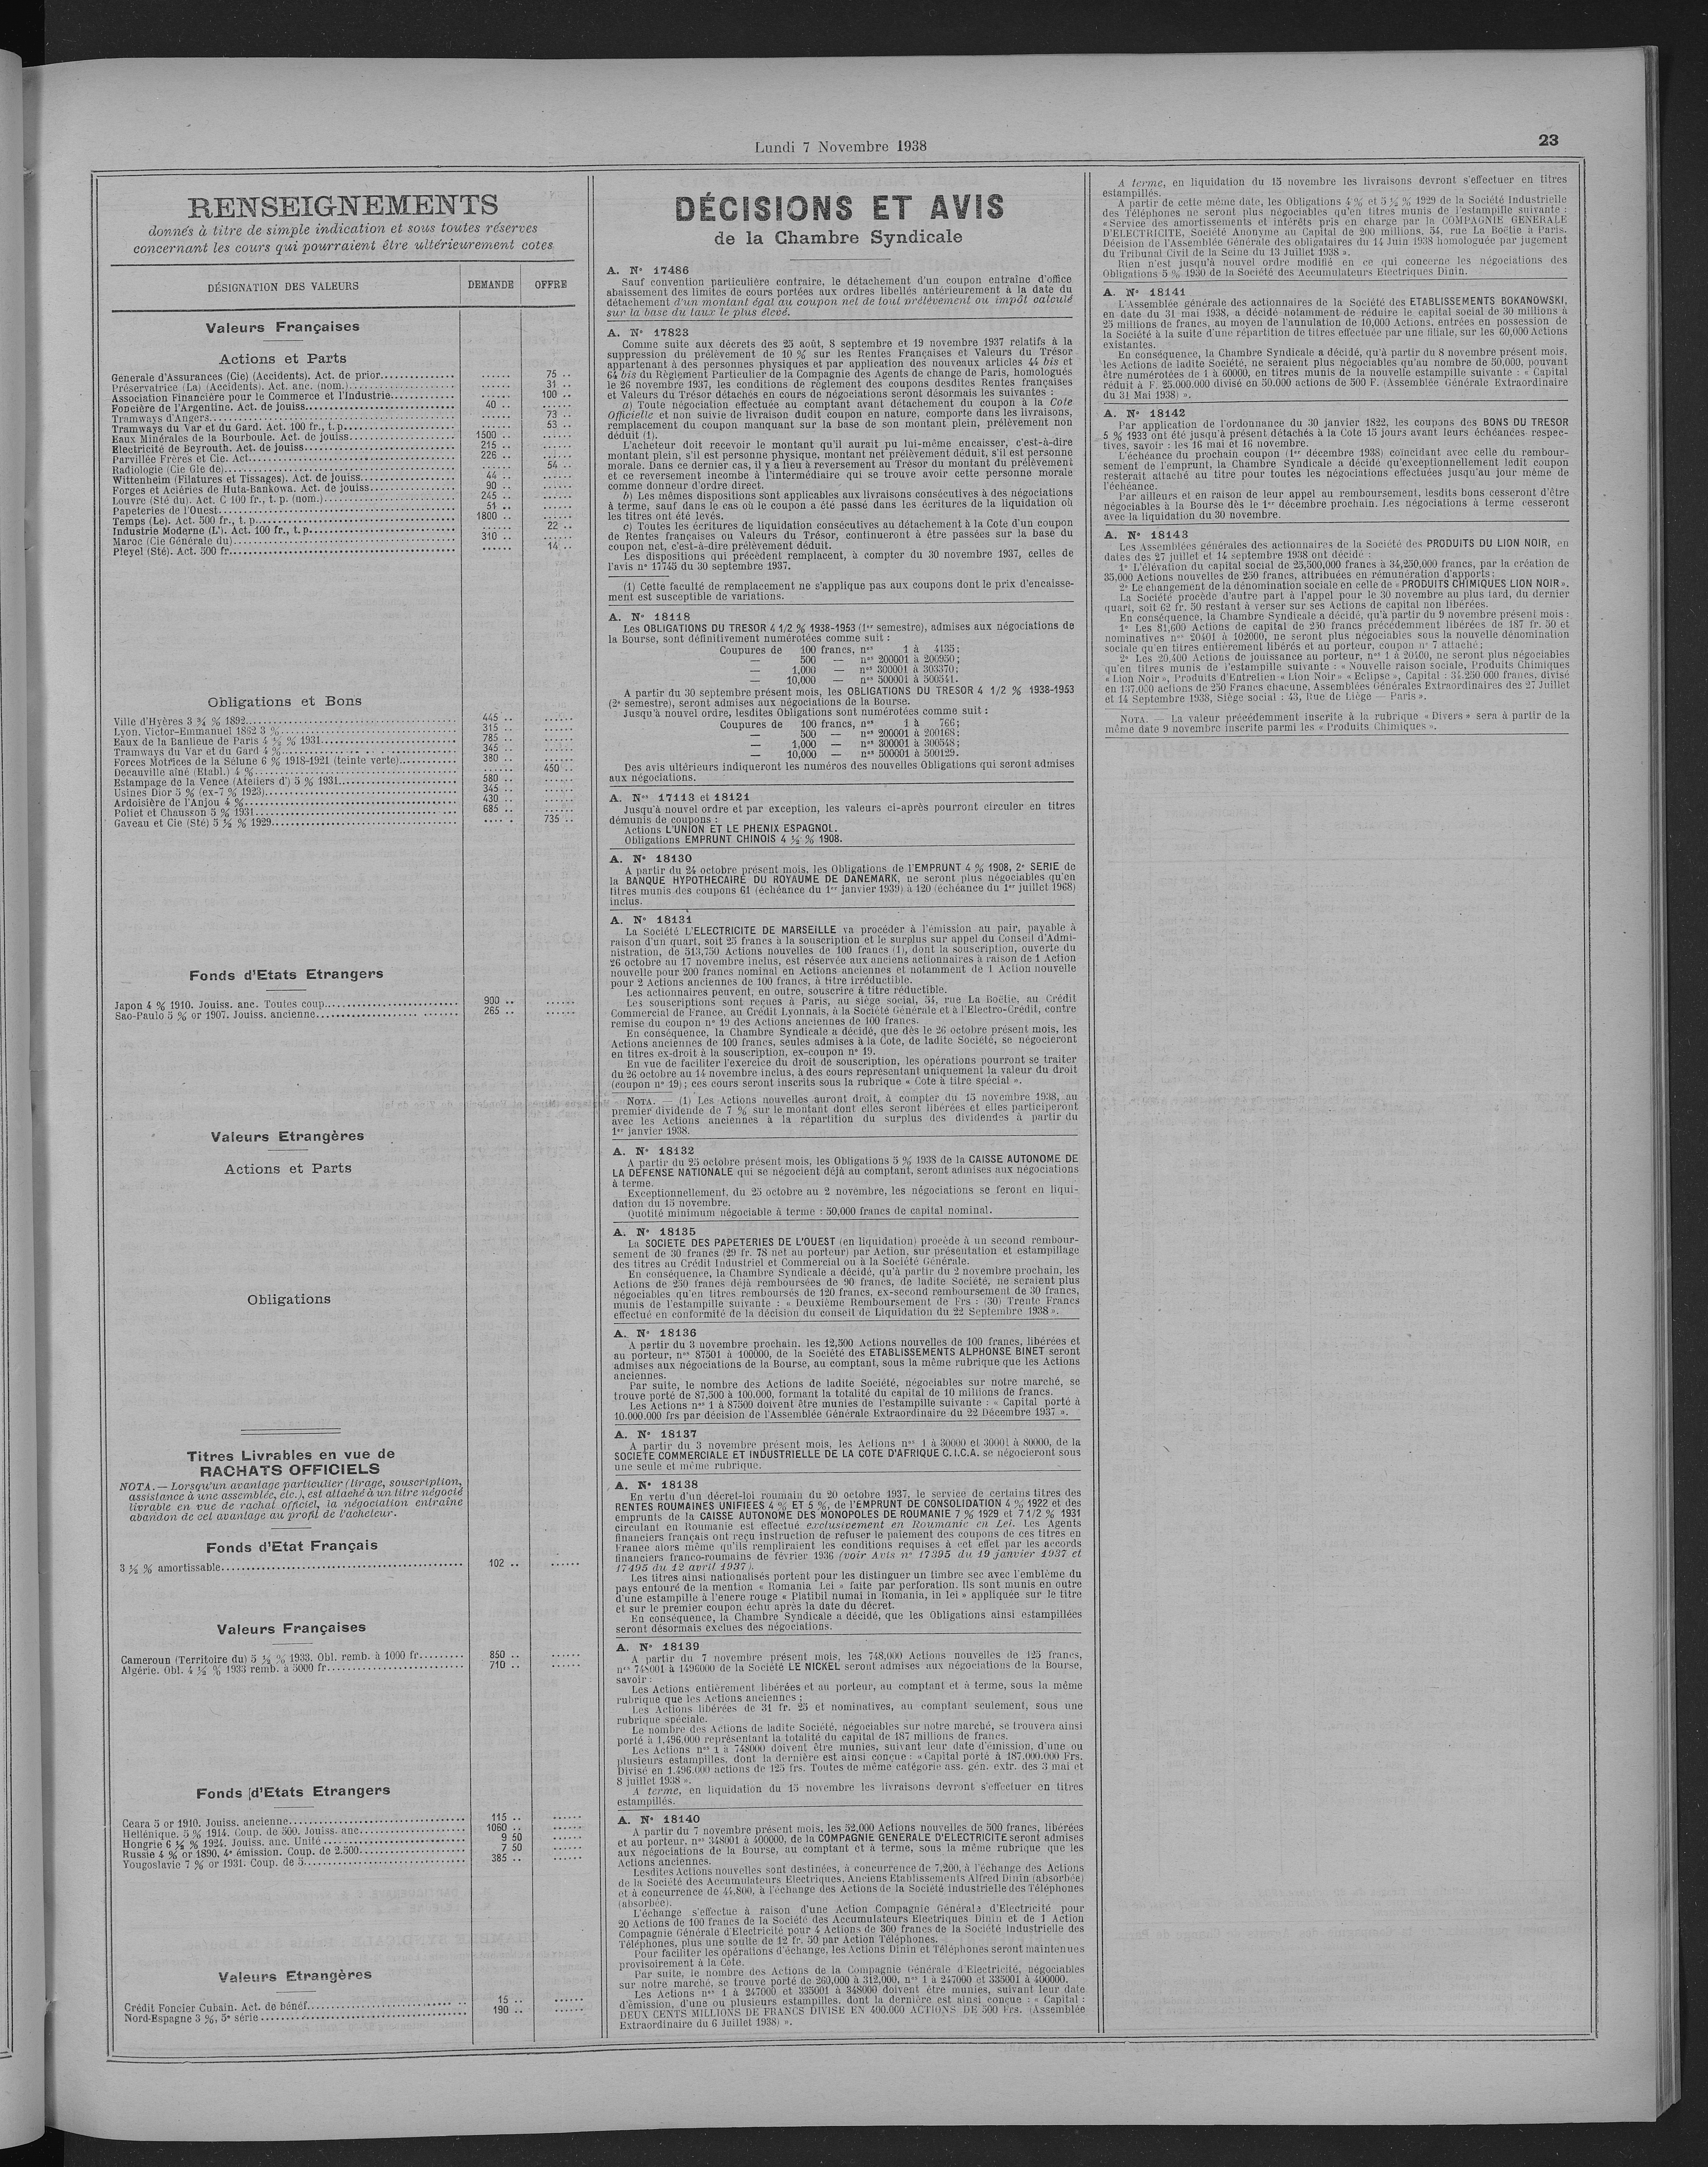 Lundi 7 Novembre 1938
23
RENSEIGNEMENTS
donnés à titre de simple indication et sous toutes réserves
concernant les cours qui pourraient être ultérieurement cotes
DÉSIGNATION DES VALEURS
DEMANDE
OFFRE
Valeurs Françaises
Actions et Parts
Generale d'Assurances (Cie) (Accidents). Act. de prior. ...... 75 ..
Préservatrice (La) (Accidents). Act. anc. (nom.) ...... 31 ..
Association Financière pour le Commerce et l'Industrie ...... 100 ..
Foncière de l'Argentine. Act. de jouiss. 40 .. ......
Tramways d'Angers ...... 73 ..
Tramways du Var et du Gard. Act. 100 fr., t. p. ...... 53 ..
Eaux Minérales de la Bourboule. Act. de jouiss. 1500 .. ......
Electricité de Beyrouth. Act. de jouiss. 215 .. ......
Parvillée Frères et Cie. Act. 226 .. ......
Radiologie (Cie Gle de) ...... 54 ..
Wittenheim (Filatures et Tissages). Act. de jouiss. 44 .. ......
Forges et Aciéries de Huta-Bankowa. Act. de jouiss. 90 .. ......
Louvre (Sté du). Act. C 100 fr., t. p. (nom.) 245 .. ......
Papeteries de l'Ouest 51 .. ......
Temps (Le). Act. 500 fr., t. p. 1800 .. ......
Industrie Moderne (L'). Act. 100 fr., t. p. ...... 22 ..
Maroc (Cie Générale du) 310 .. ......
Pleyel (Sté). Act. 500 fr. ...... 14 ..
Obligations et Bons
Ville d'Hyères 3 ¾ % 1892 445 .. ......
Lyon. Victor-Emmanuel 1862 3 % 315 .. ......
Eaux de la Banlieue de Paris 4 ½ % 1931 785 .. ......
Tramways du Var et du Gard 4 % 345 .. ......
Forces Motrices de la Sélune 6 % 1918-1921 (teinte verte) 380 .. ......
Decauville aîné (Etabl.) 4 % ...... 450 ..
Estampage de la Vence (Ateliers d') 5 % 1931 580 .. ......
Usines Dior 5 % (ex-7 % 1923) 345 .. ......
Ardoisière de l'Anjou 4 % 430 .. ......
Poliet et Chausson 5 % 1931 685 .. ......
Gaveau et Cie (Sté) 5 ½ % 1929 ...... 735 ..
Fonds d'Etats Etrangers
Japon 4 % 1910. Jouiss. anc. Toutes coup. 900 .. ......
Sao-Paulo 5 % or 1907. Jouiss. ancienne 265 .. ......
Valeurs Etrangères
Actions et Parts
Obligations
Titres Livrables en vue de
RACHATS OFFICIELS
NOTA. — Lorsqu'un avantage particulier (tirage, souscription,
assistance à une assemblée, etc.), est attaché à un titre négocié
livrable en vue de rachat officiel, la négociation entraîne
abandon de cet avantage au profit de l'acheteur.
Fonds d'Etat Français
3 ½ % amortissable 102 .. ......
Valeurs Françaises
Cameroun (Territoire du) 5 ½ % 1933. Obl. remb. à 1000 fr. 850 .. ......
Algérie. Obl. 4 ½ % 1933 remb. à 5000 fr. 710 .. ......
Fonds d'Etats Etrangers
Ceara 5 or 1910. Jouiss. ancienne 115 .. ......
Hellénique. 5 % 1914. Coup. de 500. Jouiss. anc. 1060 .. ......
Hongrie 6 ½ % 1924. Jouiss. anc. Unité 9 50 ......
Russie 4 % or 1890, 4e émission. Coup. de 2.500 7 50 ......
Yougoslavie 7 % or 1931. Coup. de 5 385 .. ......
Valeurs Etrangères
Crédit Foncier Cubain. Act. de bénéf. 15 .. ......
Nord-Espagne 3 %, 5e série 190 .. ......
DÉCISIONS ET AVIS
de la Chambre Syndicale
A. N° 17486
Sauf convention particulière contraire, le détachement d'un coupon entraîne d'office
abaissement des limites de cours portées aux ordres libellés antérieurement à la date du
détachement d'un montant égal au coupon net de tout prélèvement ou impôt calculé
sur la base du taux le plus élevé.
A. N° 17823
Comme suite aux décrets des 25 août, 8 septembre et 19 novembre 1937 relatifs à la
suppression du prélèvement de 10 % sur les Rentes Françaises et Valeurs du Trésor
appartenant à des personnes physiques et par application des nouveaux articles 44 bis et
64 bis du Règlement Particulier de la Compagnie des Agents de change de Paris, homologués
le 26 novembre 1937, les conditions de règlement des coupons desdites Rentes françaises
et Valeurs du Trésor détachés en cours de négociations seront désormais les suivantes :
a) Toute négociation effectuée au comptant avant détachement du coupon à la Cote
Officielle et non suivie de livraison dudit coupon en nature, comporte dans les livraisons,
remplacement du coupon manquant sur la base de son montant plein, prélèvement non
déduit (1).
L'acheteur doit recevoir le montant qu'il aurait pu lui-même encaisser, c'est-à-dire
montant plein, s'il est personne physique, montant net prélèvement déduit, s'il est personne
morale. Dans ce dernier cas, il y a lieu à reversement au Trésor du montant du prélèvement
et ce reversement incombe à l'intermédiaire qui se trouve avoir cette personne morale
comme donneur d'ordre direct.
b) Les mêmes dispositions sont applicables aux livraisons consécutives à des négociations
à terme, sauf dans le cas où le coupon a été passé dans les écritures de la liquidation où
les titres ont été levés.
c) Toutes les écritures de liquidation consécutives au détachement à la Cote d'un coupon
de Rentes françaises ou Valeurs du Trésor, continueront à être passées sur la base du
coupon net, c'est-à-dire prélèvement déduit.
Les dispositions qui précèdent remplacent, à compter du 30 novembre 1937, celles de
l'avis n° 17745 du 30 septembre 1937.
(1) Cette faculté de remplacement ne s'applique pas aux coupons dont le prix d'encaisse-
ment est susceptible de variations.
A. N° 18118
Les OBLIGATIONS DU TRESOR 4 1/2 % 1938-1953 (1er semestre), admises aux négociations de
la Bourse, sont définitivement numérotées comme suit :
Coupures de 100 francs, nos 1 à 4135;
— 500 — nos 200001 à 200950;
— 1,000 — nos 300001 à 303370;
— 10,000 — nos 500001 à 500541.
A partir du 30 septembre présent mois, les OBLIGATIONS DU TRESOR 4 1/2 % 1938-1953
(2e semestre), seront admises aux négociations de la Bourse.
Jusqu'à nouvel ordre, lesdites Obligations sont numérotées comme suit :
Coupures de 100 francs, nos 1 à 766;
— 500 — nos 200001 à 200168;
— 1,000 — nos 300001 à 300548;
— 10,000 — nos 500001 à 500129.
Des avis ultérieurs indiqueront les numéros des nouvelles Obligations qui seront admises
aux négociations.
A. Nos 17113 et 18121
Jusqu'à nouvel ordre et par exception, les valeurs ci-après pourront circuler en titres
démunis de coupons :
Actions L'UNION ET LE PHENIX ESPAGNOL.
Obligations EMPRUNT CHINOIS 4 ½ % 1908.
A. N° 18130
A partir du 24 octobre présent mois, les Obligations de l'EMPRUNT 4 % 1908, 2e SERIE de
la BANQUE HYPOTHECAIRE DU ROYAUME DE DANEMARK, ne seront plus négociables qu'en
titres munis des coupons 61 (échéance du 1er janvier 1939) à 120 (échéance du 1er juillet 1968)
inclus.
A. N° 18131
La Société L'ELECTRICITE DE MARSEILLE va procéder à l'émission au pair, payable à
raison d'un quart, soit 25 francs à la souscription et le surplus sur appel du Conseil d'Admi-
nistration, de 513,750 Actions nouvelles de 100 francs (1), dont la souscription, ouverte du
26 octobre au 17 novembre inclus, est réservée aux anciens actionnaires à raison de 1 Action
nouvelle pour 200 francs nominal en Actions anciennes et notamment de 1 Action nouvelle
pour 2 Actions anciennes de 100 francs, à titre irréductible.
Les actionnaires peuvent, en outre, souscrire à titre réductible.
Les souscriptions sont reçues à Paris, au siège social, 54, rue La Boëtie, au Crédit
Commercial de France, au Crédit Lyonnais, à la Société Générale et à l'Electro-Crédit, contre
remise du coupon n° 19 des Actions anciennes de 100 francs.
En conséquence, la Chambre Syndicale a décidé, que dès le 26 octobre présent mois, les
Actions anciennes de 100 francs, seules admises à la Cote, de ladite Société, se négocieront
en titres ex-droit à la souscription, ex-coupon n° 19.
En vue de faciliter l'exercice du droit de souscription, les opérations pourront se traiter
du 26 octobre au 14 novembre inclus, à des cours représentant uniquement la valeur du droit
(coupon n° 19); ces cours seront inscrits sous la rubrique « Cote à titre spécial ».
NOTA. — (1) Les Actions nouvelles auront droit, à compter du 15 novembre 1938, au
premier dividende de 7 % sur le montant dont elles seront libérées et elles participeront
avec les Actions anciennes à la répartition du surplus des dividendes à partir du
1er janvier 1938.
A. N° 18132
A partir du 25 octobre présent mois, les Obligations 5 % 1938 de la CAISSE AUTONOME DE
LA DEFENSE NATIONALE qui se négocient déjà au comptant, seront admises aux négociations
à terme.
Exceptionnellement, du 25 octobre au 2 novembre, les négociations se feront en liqui-
dation du 15 novembre.
Quotité minimum négociable à terme : 50,000 francs de capital nominal.
A. N° 18135
La SOCIETE DES PAPETERIES DE L'OUEST (en liquidation) procède à un second rembour-
sement de 30 francs (29 fr. 78 net au porteur) par Action, sur présentation et estampillage
des titres au Crédit Industriel et Commercial ou à la Société Générale.
En conséquence, la Chambre Syndicale a décidé, qu'à partir du 2 novembre prochain, les
Actions de 250 francs déjà remboursées de 90 francs, de ladite Société, ne seraient plus
négociables qu'en titres remboursés de 120 francs, ex-second remboursement de 30 francs,
munis de l'estampille suivante : « Deuxième Remboursement de Frs : (30) Trente Francs
effectué en conformité de la décision du conseil de Liquidation du 22 Septembre 1938 ».
A. N° 18136
A partir du 3 novembre prochain, les 12,500 Actions nouvelles de 100 francs, libérées et
au porteur, nos 87501 à 100000, de la Société des ETABLISSEMENTS ALPHONSE BINET seront
admises aux négociations de la Bourse, au comptant, sous la même rubrique que les Actions
anciennes.
Par suite, le nombre des Actions de ladite Société, négociables sur notre marché, se
trouve porté de 87,500 à 100.000, formant la totalité du capital de 10 millions de francs.
Les Actions nos 1 à 87500 doivent être munies de l'estampille suivante : « Capital porté à
10.000.000 frs par décision de l'Assemblée Générale Extraordinaire du 22 Décembre 1937 ».
A. N° 18137
A partir du 3 novembre présent mois, les Actions nos 1 à 30000 et 30001 à 80000, de la
SOCIETE COMMERCIALE ET INDUSTRIELLE DE LA COTE D'AFRIQUE C.I.C.A. se négocieront sous
une seule et même rubrique.
A. N° 18138
En vertu d'un décret-loi roumain du 20 octobre 1937, le service de certains titres des
RENTES ROUMAINES UNIFIEES 4 % ET 5 %, de l'EMPRUNT DE CONSOLIDATION 4 % 1922 et des
emprunts de la CAISSE AUTONOME DES MONOPOLES DE ROUMANIE 7 % 1929 et 7 1/2 % 1931
circulant en Roumanie est effectué exclusivement en Roumanie en Lei. Les Agents
financiers français ont reçu instruction de refuser le paiement des coupons de ces titres en
France alors même qu'ils rempliraient les conditions requises à cet effet par les accords
financiers franco-roumains de février 1936 (voir Avis n° 17395 du 19 janvier 1937 et
17495 du 12 avril 1937).
Les titres ainsi nationalisés portent pour les distinguer un timbre sec avec l'emblème du
pays entouré de la mention « Romania Lei » faite par perforation. Ils sont munis en outre
d'une estampille à l'encre rouge « Platibil numai in Romania, in lei » appliquée sur le titre
et sur le premier coupon échu après la date du décret.
En conséquence, la Chambre Syndicale a décidé, que les Obligations ainsi estampillées
seront désormais exclues des négociations.
A. N° 18139
A partir du 7 novembre présent mois, les 748,000 Actions nouvelles de 125 francs,
nos 748001 à 1496000 de la Société LE NICKEL seront admises aux négociations de la Bourse,
savoir :
Les Actions entièrement libérées et au porteur, au comptant et à terme, sous la même
rubrique que les Actions anciennes ;
Les Actions libérées de 31 fr. 25 et nominatives, au comptant seulement, sous une
rubrique spéciale.
Le nombre des Actions de ladite Société, négociables sur notre marché, se trouvera ainsi
porté à 1.496,000 représentant la totalité du capital de 187 millions de francs.
Les Actions nos 1 à 748000 doivent être munies, suivant leur date d'émission, d'une ou
plusieurs estampilles, dont la dernière est ainsi conçue : « Capital porté à 187.000.000 Frs.
Divisé en 1.496.000 actions de 125 frs. Toutes de même catégorie ass. gén. extr. des 3 mai et
8 juillet 1938 ».
A terme, en liquidation du 15 novembre les livraisons devront s'effectuer en titres
estampillés.
A. N° 18140
A partir du 7 novembre présent mois, les 52,000 Actions nouvelles de 500 francs, libérées
et au porteur, nos 348001 à 400000, de la COMPAGNIE GENERALE D'ELECTRICITE seront admises
aux négociations de la Bourse, au comptant et à terme, sous la même rubrique que les
Actions anciennes.
Lesdites Actions nouvelles sont destinées, à concurrence de 7,200, à l'échange des Actions
de la Société des Accumulateurs Electriques, Anciens Etablissements Alfred Dinin (absorbée)
et à concurrence de 44.800, à l'échange des Actions de la Société industrielle des Téléphones
(absorbée).
L'échange s'effectue à raison d'une Action Compagnie Générale d'Electricité pour
20 Actions de 100 francs de la Société des Accumulateurs Electriques Dinin et de 1 Action
Compagnie Générale d'Electricité pour 4 Actions de 300 francs de la Société Industrielle des
Téléphones, plus une soulte de 12 fr. 50 par Action Téléphones.
Pour faciliter les opérations d'échange, les Actions Dinin et Téléphones seront maintenues
provisoirement à la Cote.
Par suite, le nombre des Actions de la Compagnie Générale d'Electricité, négociables
sur notre marché, se trouve porté de 260,000 à 312,000, nos 1 à 247000 et 335001 à 400000.
Les Actions nos 1 à 247000 et 335001 à 348000 doivent être munies, suivant leur date
d'émission, d'une ou plusieurs estampilles, dont la dernière est ainsi conçue : « Capital :
DEUX CENTS MILLIONS DE FRANCS DIVISE EN 400.000 ACTIONS DE 500 Frs. (Assemblée
Extraordinaire du 6 Juillet 1938) ».
A terme, en liquidation du 15 novembre les livraisons devront s'effectuer en titres
estampillés.
A partir de cette même date, les Obligations 4 % et 5 ½ % 1929 de la Société Industrielle
des Téléphones ne seront plus négociables qu'en titres munis de l'estampille suivante :
« Service des amortissements et intérêts pris en charge par la COMPAGNIE GENERALE
D'ELECTRICITE, Société Anonyme au Capital de 200 millions, 54, rue La Boëtie à Paris.
Décision de l'Assemblée Générale des obligataires du 14 Juin 1938 homologuée par jugement
du Tribunal Civil de la Seine du 13 Juillet 1938 ».
Rien n'est jusqu'à nouvel ordre modifié en ce qui concerne les négociations des
Obligations 5 % 1930 de la Société des Accumulateurs Electriques Dinin.
A. N° 18141
L'Assemblée générale des actionnaires de la Société des ETABLISSEMENTS BOKANOWSKI,
en date du 31 mai 1938, a décidé notamment de réduire le capital social de 30 millions à
25 millions de francs, au moyen de l'annulation de 10,000 Actions, entrées en possession de
la Société à la suite d'une répartition de titres effectuée par une filiale, sur les 60,000 Actions
existantes.
En conséquence, la Chambre Syndicale a décidé, qu'à partir du 8 novembre présent mois,
les Actions de ladite Société, ne seraient plus négociables qu'au nombre de 50,000, pouvant
être numérotées de 1 à 60000, en titres munis de la nouvelle estampille suivante : « Capital
réduit à F. 25.000.000 divisé en 50.000 actions de 500 F. (Assemblée Générale Extraordinaire
du 31 Mai 1938) ».
A. N° 18142
Par application de l'ordonnance du 30 janvier 1822, les coupons des BONS DU TRESOR
5 % 1933 ont été jusqu'à présent détachés à la Cote 15 jours avant leurs échéances respec-
tives, savoir : les 16 mai et 16 novembre.
L'échéance du prochain coupon (1er décembre 1938) coïncidant avec celle du rembour-
sement de l'emprunt, la Chambre Syndicale a décidé qu'exceptionnellement ledit coupon
resterait attaché au titre pour toutes les négociations effectuées jusqu'au jour même de
l'échéance.
Par ailleurs et en raison de leur appel au remboursement, lesdits bons cesseront d'être
négociables à la Bourse dès le 1er décembre prochain. Les négociations à terme cesseront
avec la liquidation du 30 novembre.
A. N° 18143
Les Assemblées générales des actionnaires de la Société des PRODUITS DU LION NOIR, en
dates des 27 juillet et 14 septembre 1938 ont décidé :
1° L'élévation du capital social de 25,500,000 francs à 34,250,000 francs, par la création de
35,000 Actions nouvelles de 250 francs, attribuées en rémunération d'apports;
2° Le changement de la dénomination sociale en celle de « PRODUITS CHIMIQUES LION NOIR ».
La Société procède d'autre part à l'appel pour le 30 novembre au plus tard, du dernier
quart, soit 62 fr. 50 restant à verser sur ses Actions de capital non libérées.
En conséquence, la Chambre Syndicale a décidé, qu'à partir du 9 novembre présent mois :
1° Les 81,600 Actions de capital de 250 francs précédemment libérées de 187 fr. 50 et
nominatives nos 20401 à 102000, ne seront plus négociables sous la nouvelle dénomination
sociale qu'en titres entièrement libérés et au porteur, coupon n° 7 attaché;
2° Les 20,400 Actions de jouissance au porteur, nos 1 à 20400, ne seront plus négociables
qu'en titres munis de l'estampille suivante : « Nouvelle raison sociale, Produits Chimiques
« Lion Noir », Produits d'Entretien « Lion Noir » « Eclipse », Capital : 34.250.000 francs, divisé
en 137.000 actions de 250 Francs chacune. Assemblées Générales Extraordinaires des 27 Juillet
et 14 Septembre 1938, Siège social : 43, Rue de Liège — Paris ».
NOTA. — La valeur précédemment inscrite à la rubrique « Divers » sera à partir de la
même date 9 novembre inscrite parmi les « Produits Chimiques ».